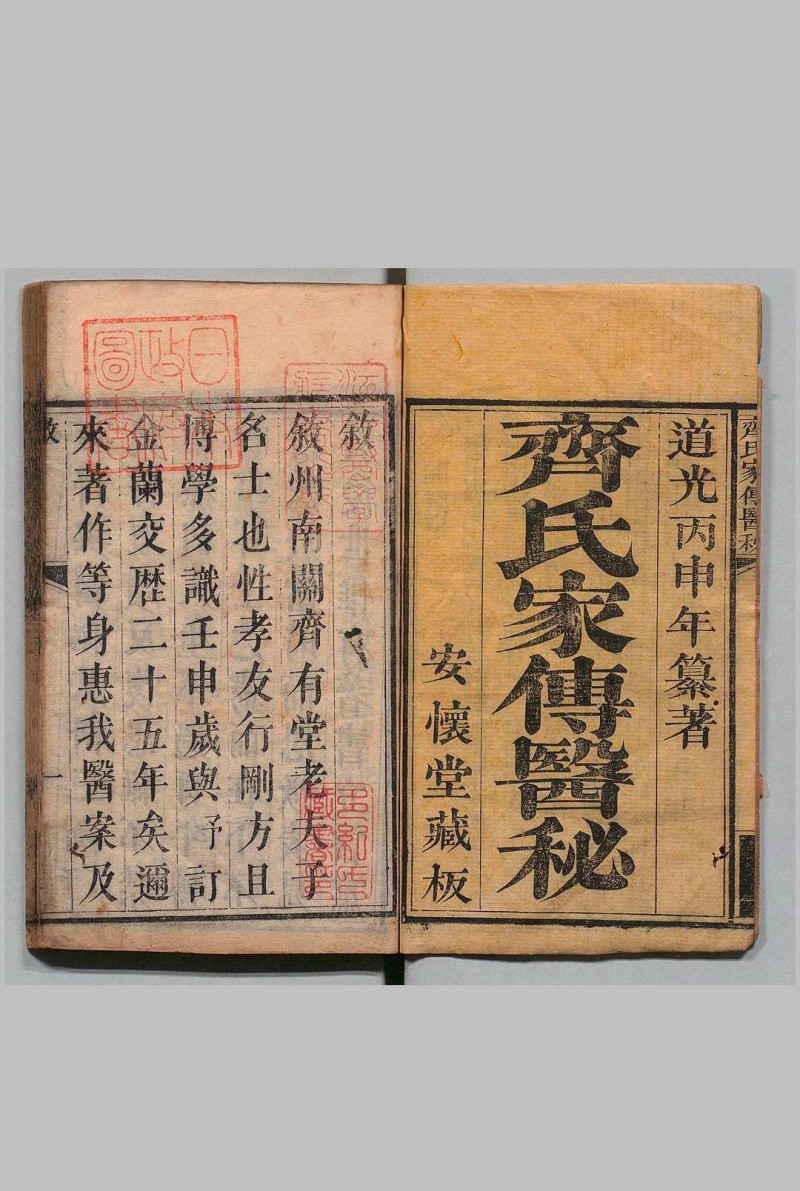 齊氏家傳醫秘
道光丙申年纂著
齊氏家傳醫秘
安懷堂藏板
敘
敘州南關齊有堂老夫子
名士也性孝友行剛方且
博學多識壬申歲與予訂
金蘭交歷二十五年矣邇
來著作等身惠我醫案及
敘
一